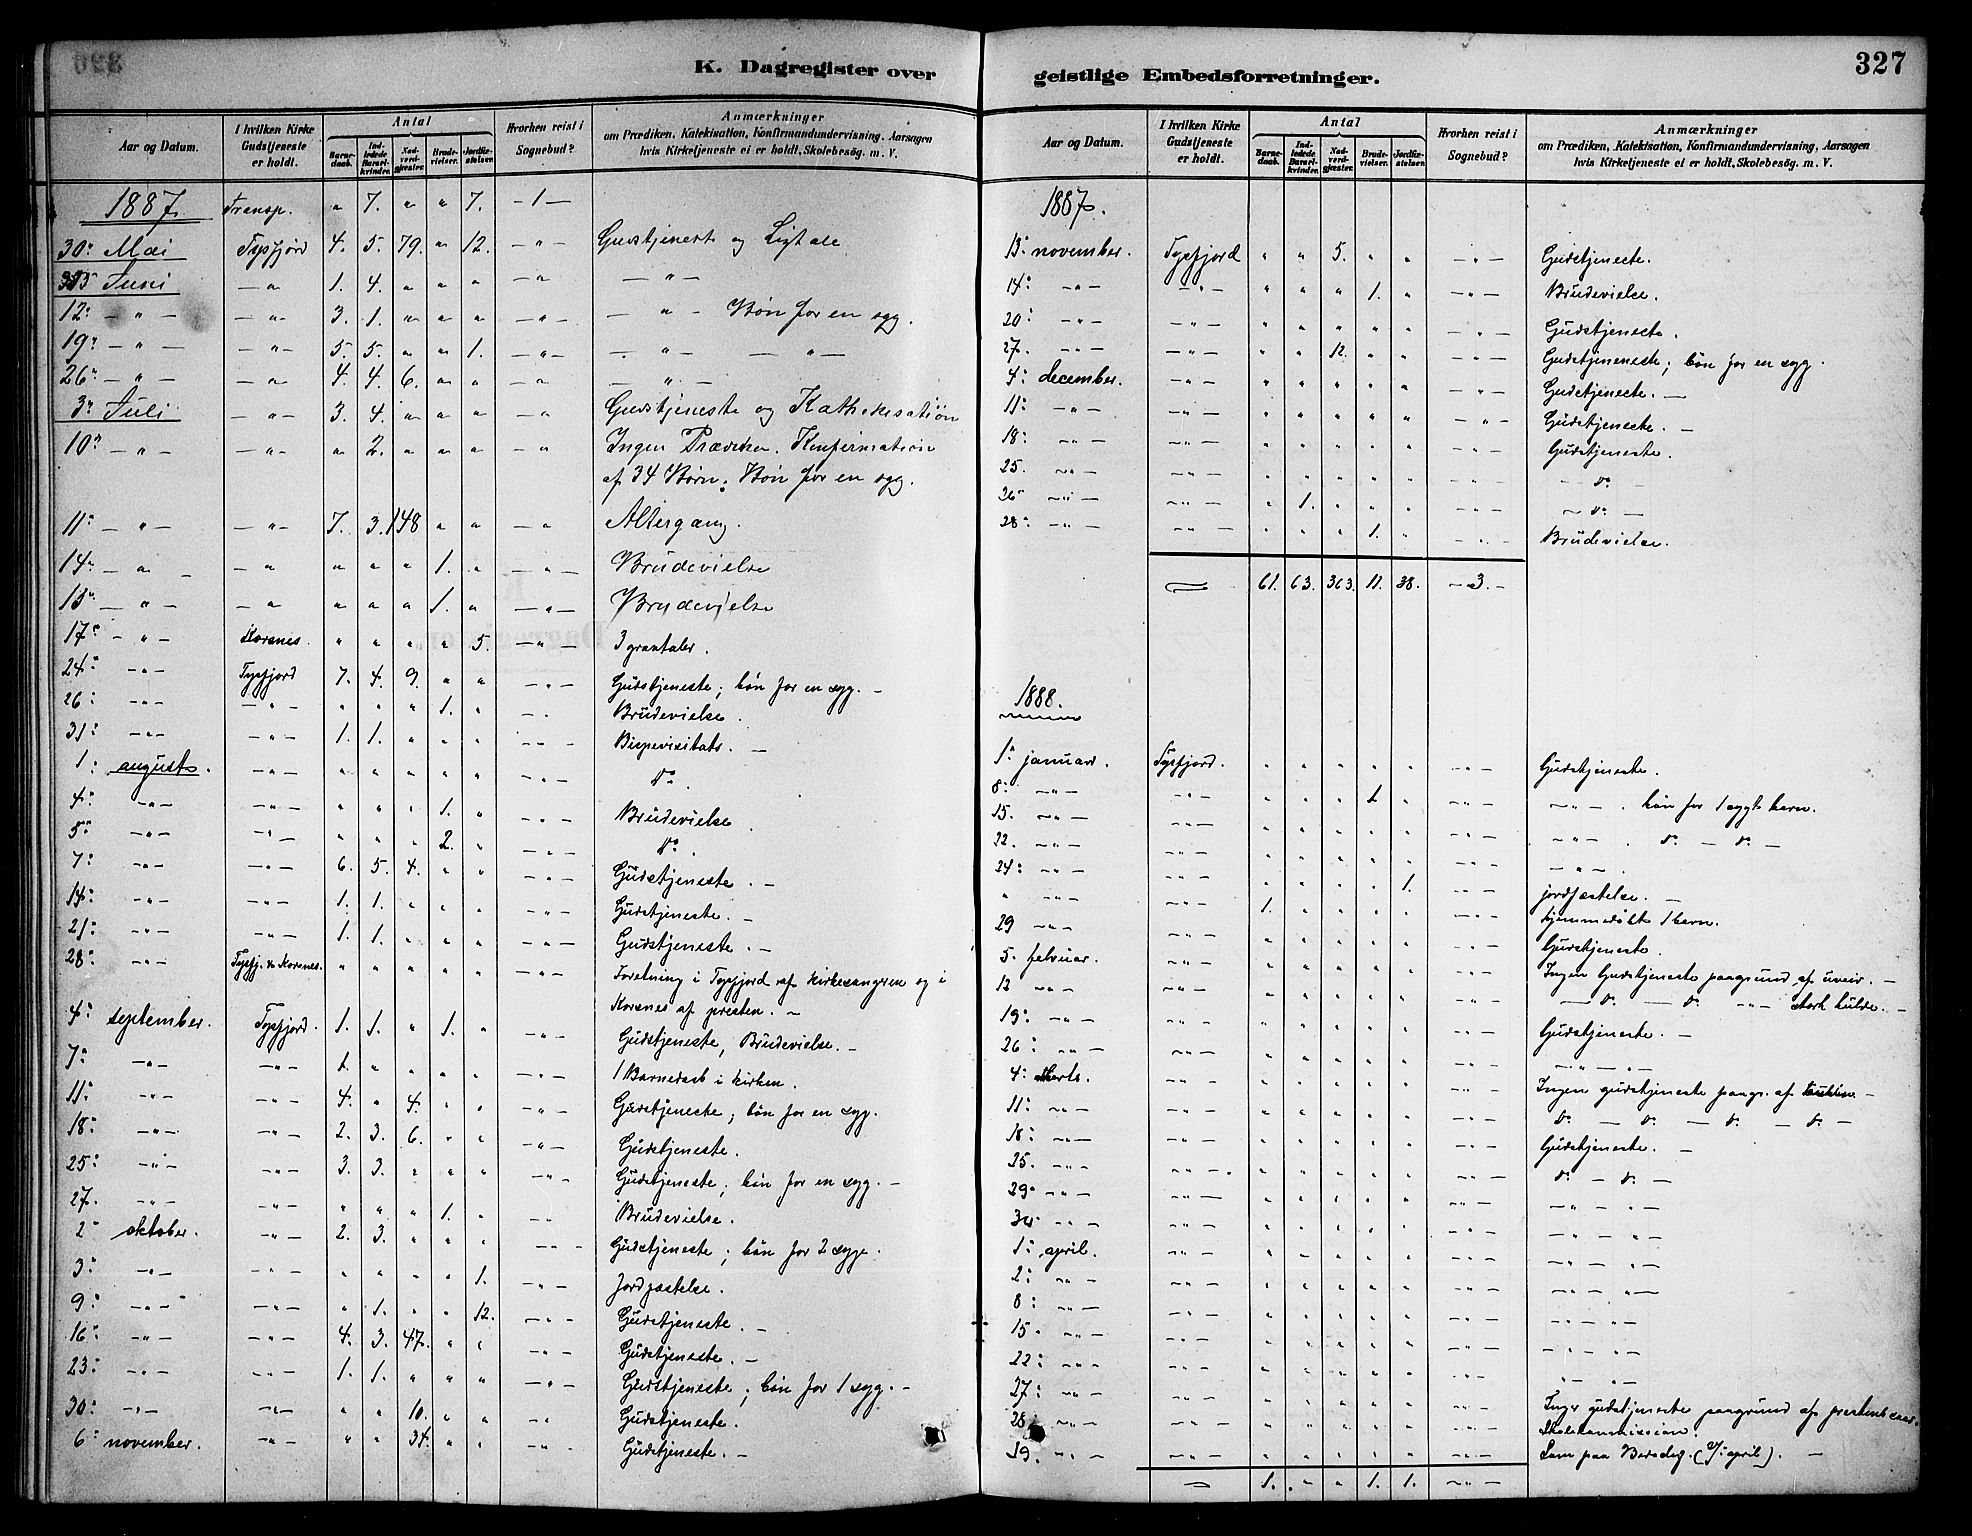 K. Dagregister over
Aar og Datum. I hvilken Kirke Gudstjeneste er holdt. Antal Barnedaab. Indledede Barselkvinder. Nadverdgjester. Brudevielser. Jordfæstelser. Hvorhen reist i Sognebud? Anmærkninger om Prædiken, Katekisation, Konfirmandundervisning, Aarsagen hvis Kirketjeneste ei er holdt, Skolebesög. m. V.
1887. Transp. " 7. " " 7. -1-
30: Mai Tysfjord 4. 5. 79. " 12. - " - Gudstjenest og Ligtale
Juni - " 1. 4. " " " - " - " -
12: - " - - " - 3. 1. " " " - " - - " - Bøn for en syg.
19: - " - - " - 5. 5. " " 1. - " - - " - - " -
26: - " - - " 4. 4. 6. " " - " - " -
3: Juli - " - 3. 4. " " " - " Gudstjeneste og Kathekisation
10: - " - - " - " 2. " " " - " Ingen Prædiken. Konfirmation
af 34 Børn; Bøn for en syg.
11: - " - - " - 7. 3. 148 " " - " Altergang.
14: - " - - " " " " 1. " - " - Brudevielse
- " - - " " " " 1. " - " - Brudevielse
17: - " - Korsnes. " " " " 5. - " - 3 gravtaler.
24: - " - Tysfjord 7. 4. 9. " " - " - Gudstjeneste; bøn for en syg. -
26: - " - - " - " " " 1. " - " Brudevielse.
31: - " - - " - 1. 1. " " " - " - Bispevisitats. -
1: august. - " - " " " " " - " - do.
4: - " - - " - " " " 1. " - " - Brudevielse.
5: - " - - " - " " " 2. " - " - do.
7: - " - - " - 6. 5. 4. " " - " - Gudstjeneste. -
14: - " - - " - 1. 1. " " " - " - Gudstjeneste. -
21: - " - - " - 1. 1. " " " - " - Gudstjeneste. -
28: - " - Tysfj. & Korsnes. " " " " " - " - Forretning i Tysfjord af kirkesangeren og i
Korsnes af presten. -
4: september. Tysfjord. 1. 1. " 1. " - " - Gudstjeneste, Brudevielse. -
7: - " - - " - 1. " " " " - " - 1 Barnedaab i kirken.
11: - " - - " - 4. " 4. " " - " - Gudstjeneste; bøn for en syg.
18: - " - - " - 2. 3. 6. " " - " - Gudstjeneste.
25: - " - - " - 3. 3. " " " - " - Gudstjeneste; bøn for en syg. -
27. - " - - " - " " " 1. " - " Brudevielse.
2: oktober. - " - 2. 3. " " " - " - Gudstjeneste; bøn for 2 syge.
3: - " - - " - " " " " 1. - " - Jordfæstelse.
9: - " - - " - " 1. " " 12. - " - Gudstjeneste. -
16: - " - - " - 4. 3. 47. " " - " - Gudstjeneste. -
23: - " - - " - 1. 1. " " " - " - Gudstjeneste; bøn for 1 syg. -
30: - " - - " - " " 10. " " - " Gudstjeneste.
6: november. - " - " " 34. " " - " - Gudstjeneste. -
geistlige Embedsforretninger. 327
Aar og Datum. I hvilken Kirke Gudstjeneste er holdt. Antal Barnedaab. Indledede Barselkvinder. Nadverdgjester. Brudevielser. Jordfæstelser. Hvorhen reist i Sognebud? Anmærkninger om Prædiken, Katekisation, Konfirmandundervisning, Aarsagen hvis Kirketjeneste ei er holdt, Skolebesög. m. V.
1887.
13: november. Tysfjord " " 5. " " - " - Gudstjeneste.
14: - " - - " - " " " 1. " - " - Brudevielse.
20: - " - - " - " " " " " - " - Gudstjeneste.
27. - " - - " - " " 12. " " - " - Gudstjeneneste; bøn for en syg.
4: december. - " - " " " " " - " - Gudstjeneste. -
11: - " - - " - " " " " " - " - Gudstjeneste. -
18: - " - - " - " " " " " - " - Gudstjeneste.
25. - " - - " - " " " " " - " - - do -
26: - " - - " - " 1. " " " - " - - do. -
28: - " - - " - " " " 1. " - " - Brudevielse.
61. 63. 363. 11. 38. - 3. -
1888.
1: januar. Tysfjord. " " " " " - " - Gudstjeneste.
8: - " - - " - " " " 1 " - " - - " - . bøn for 1 sygt barn.
15. - " - - " - " " " " " - " - - " - do - do. -
22. - " - - " - " " " " " - " - - " -
24: - " - - " - " " " " 1. - " - jordfæstelse. -
" - " - - " - 1. " " " " - " - hjemmedöbt 1 barn.
29 - " - " " " " " - " - Gudstjeneste.
5. februar. - " - " " " " " - " - Ingen Gudstjeneste paagrund af uveir. -
12 - " - - " - " " " " " - " - - do. - do. - " - sterk kulde. -
19: - " - - " - " " " " " - " - Gudstjeneste. -
26: - " - - " - " " " " " - " - - " - " -
4: Marts. - " - " " " " " - " - Ingen gudstjeneste paagr. af
11: - " - - " - " " " " " - " - do. - do. - do. - do. -
18: - " - - " - " " " " " - " - Gudstjeneste. -
25. - " - - " - " " " " " - " - do. - do. -
29: - " - - " - " " " " " - " - - " - " -
- " - - " - " " " " " - " - - " - " -
1: april. - " - " " " " " - " - - " - " -
2: - " - - " - " " " " " - " - - " - " -
8: - " - - " - " " " " " - " - - " - " -
15. - " - - " - " " " " " - " - - " - " -
22: - " - - " - " " " " " - " - - " - " -
27: - " - - " - " " " " " - " - gudstjeneste paagrund af
28 - " - - " - " " " " " - " - Skolekommission.
- " - - " - " " " " " - " - Som paa (april). -
1. " " 1. 1. - " -